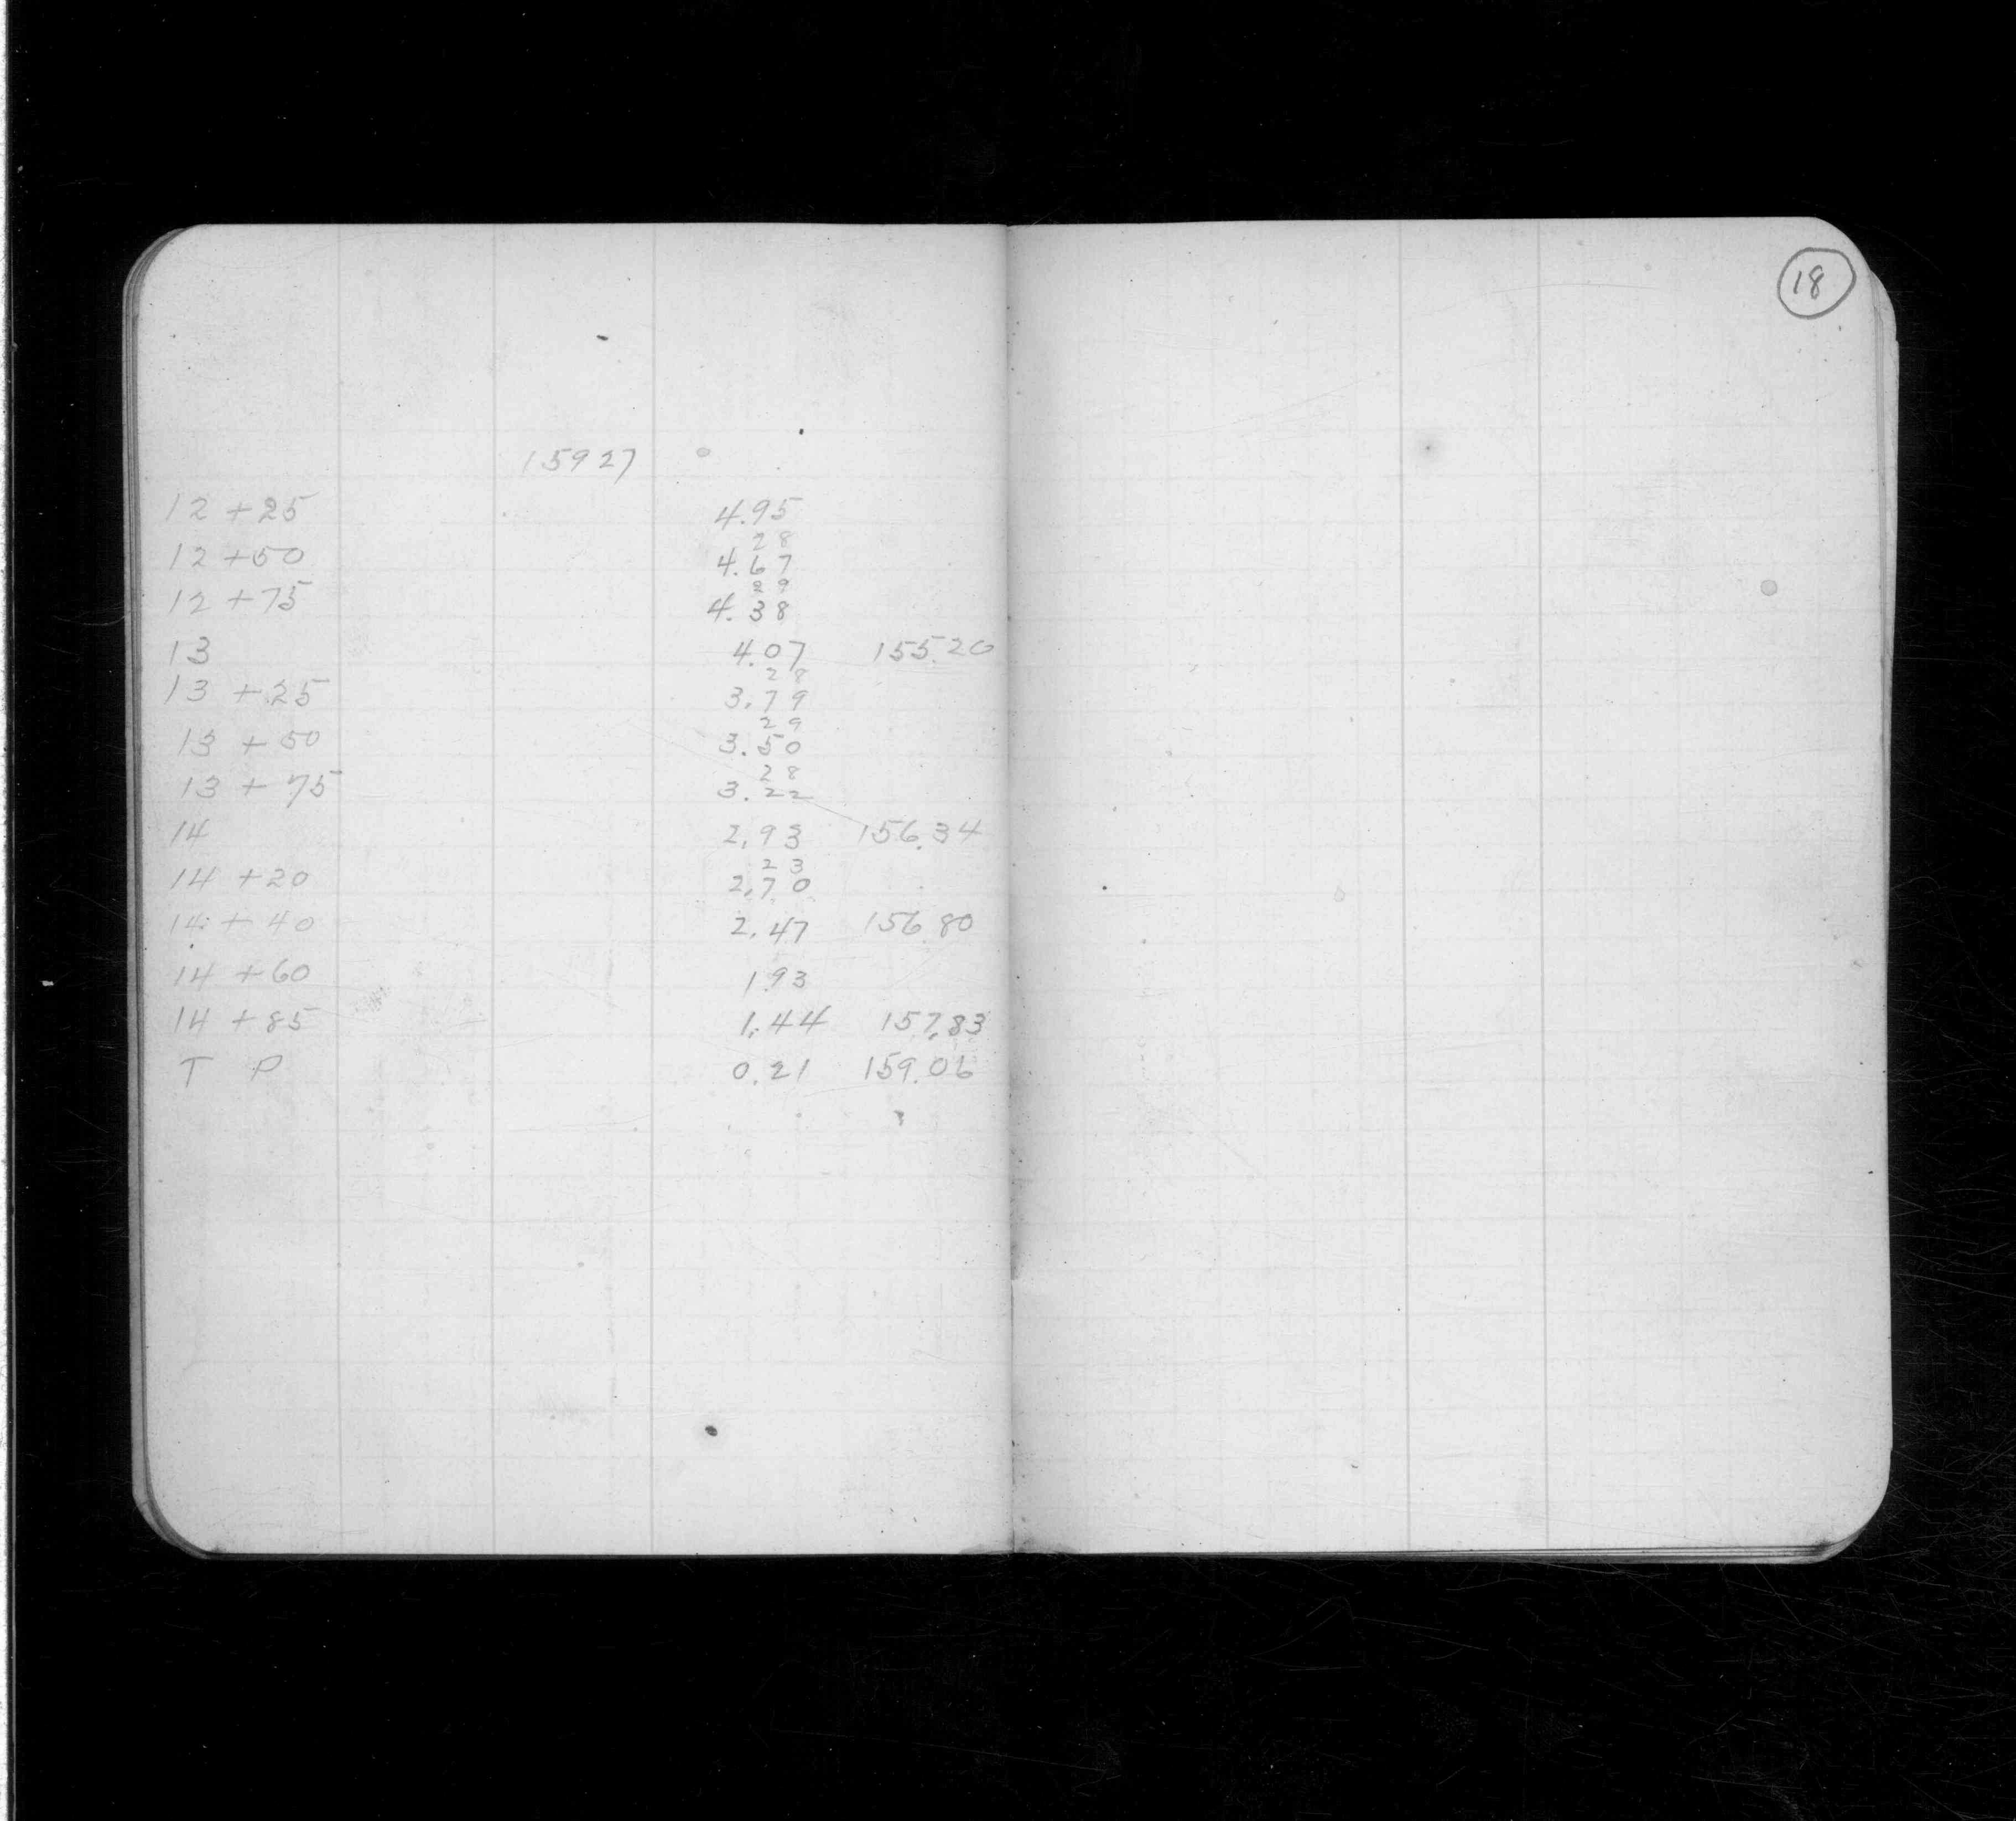 18
15927
12 +25 4.95
28
12 +50 4.67
29
12 +75 4.38
13 4.07 155.20
28
13 +25 3.79
29
13 +50 3.50
28
13 +75 3.22
14 2.93 156.34
23
14 +20 2.70
14 +40 2.47 156.80
14 +60 1.93
14 +85 1.44 157.83
T P 0.21 159.06